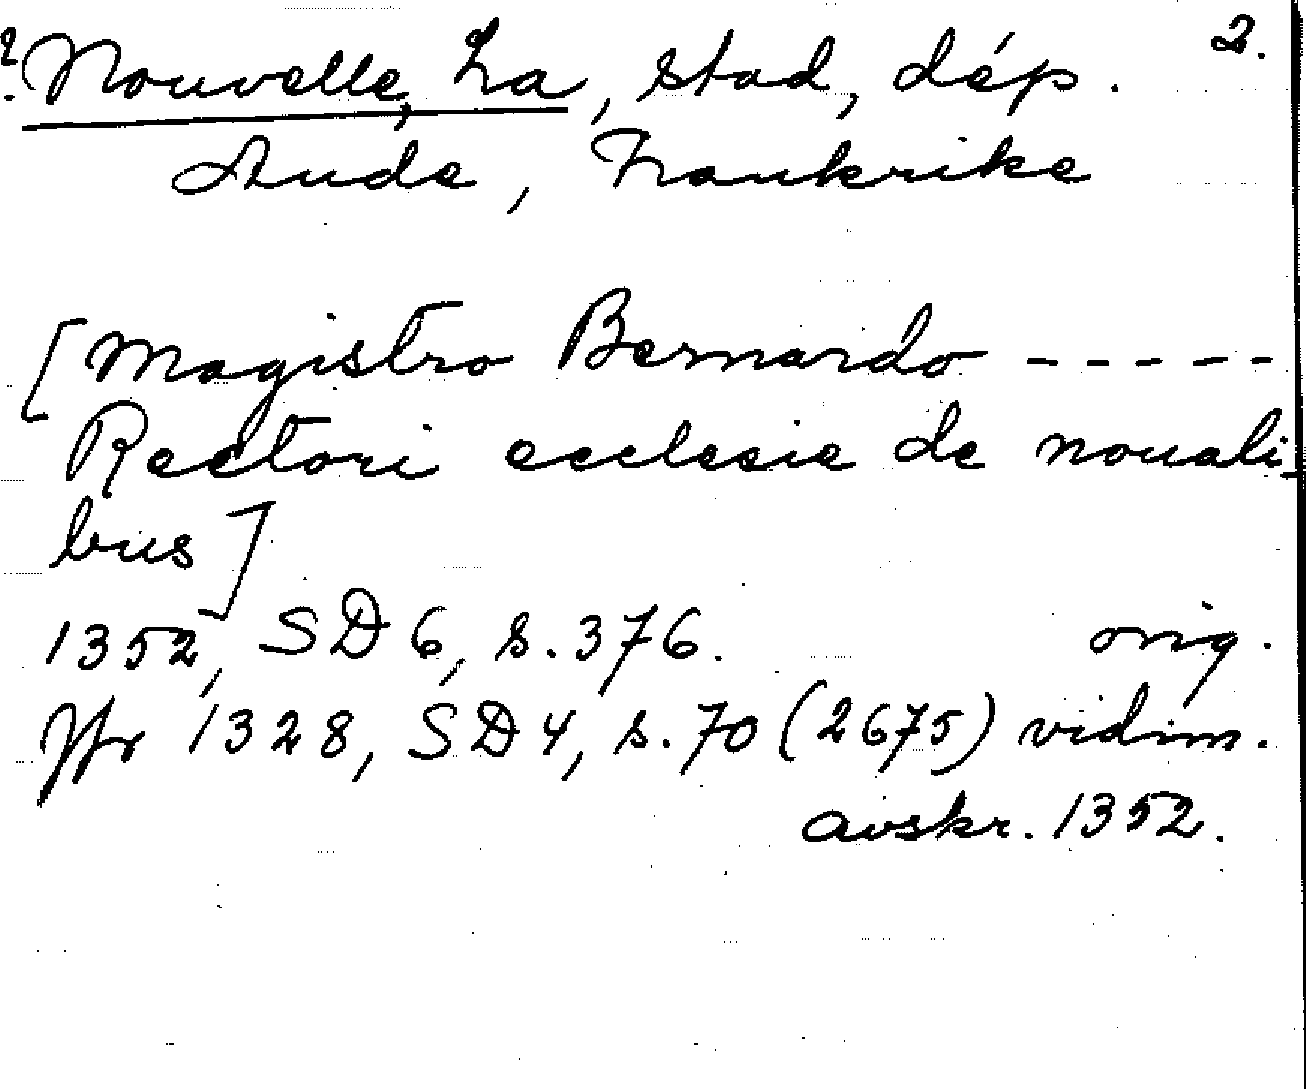 ? Nouvelle, La, stad, dép. 2.
Aude, Frankrike
[Magistro Bernardo -----
Rectori ecclesie de nouali
bus]
1352, SD 6, s. 376. orig.
Jfr 1328, SD 4, s. 70 (2675) vidim.
avskr. 1352.